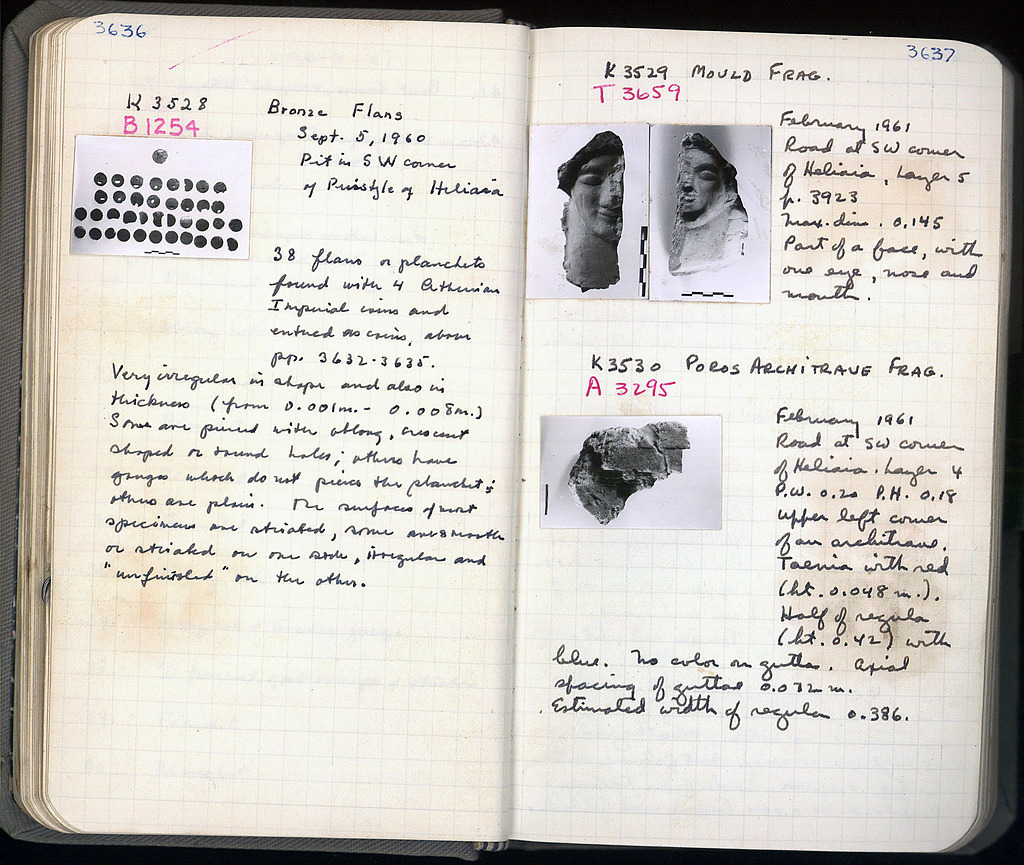 3636
K 3528
B 1254
Bronze Flans
Sept. 5, 1960
Pit in SW corner
of Peristyle of Heliaia
38 flans or planchets
found with 4 Athenian
Imperial coins and
entered as coins, above
pp. 3632-3635.
Very irregular in shape and also in
thickness (from 0.001m. - 0.008m.)
Some are pierced with oblong, crescent
shaped or round holes; others have
gouges which do not pierce the planchet;
others are plain. The surfaces of most
specimens are striated, some are smooth
or striated on one side, irregular and
"unfinished" on the other.
3637
K 3529 MOULD FRAG.
T 3659
February 1961
Road at SW corner
of Heliaia, Layer 5
p. 3923
Max. dim. 0.145
Part of a face, with
one eye, nose and
mouth.
K3530 POROS ARCHITRAVE FRAG.
A 3295
February 1961
Road at SW corner
of Heliaia. Layer 4
P.W. 0.20 P.H. 0.18
Upper left corner
of an architrave.
Taenia with red
(ht. 0.048 m.).
Half of regula
(ht. 0.42) with
blue. No color on guttae. Axial
spacing of guttae 0.072 m.
Estimated width of regula 0.386.